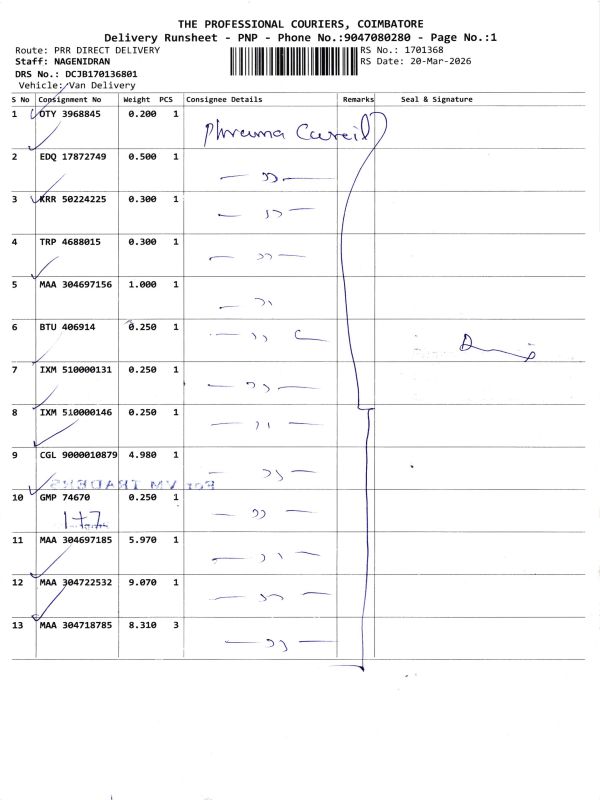 THE PROFESSIONAL COURIERS, COIMBATORE
Delivery Runsheet - PNP - Phone No.:9047080280 - Page No.:1
Route: PRR DIRECT DELIVERY RS No.: 1701368
Staff: NAGENIDRAN RS Date: 20-Mar-2026
DRS No.: DCJB170136801
Vehicle: Van Delivery
S No Consignment No Weight PCS Consignee Details Remarks Seal & Signature
1 OTY 3968845 0.200 1
2 EDQ 17872749 0.500 1 — ,, —
3 KRR 50224225 0.300 1 — ,, —
4 TRP 4688015 0.300 1 — ,, —
5 MAA 304697156 1.000 1 — ,,
6 BTU 406914 0.250 1 — ,,
7 IXM 510000131 0.250 1 — ,, —
8 IXM 510000146 0.250 1 — ,, —
9 CGL 9000010879 4.980 1 — ,, —
For VM TRADERS
10 GMP 74670 0.250 1 — ,, —
1+7
11 MAA 304697185 5.970 1 — ,, —
12 MAA 304722532 9.070 1 — ,, —
13 MAA 304718785 8.310 3 — ,, —